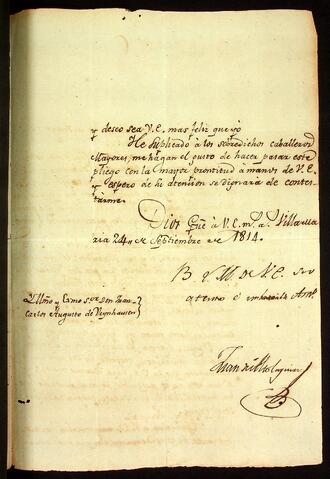 y deseo sea V.E. mas feliz que yo
He suplicado à los sobredichos caballeros
Mayores, me hagan el gusto de hacer pasar este
pliego con la mayor prontitud a manos de V.E.
y espero de su atension se dignara de contes-
tarme.
Dios gũe à V.E. m.s a.s Villa
ria 24 de Septiembre de 1814.
B. L. M. de V.E. su
atento é
Ylmo y Exmo S.or Don Juan
Carlos Augusto de Oeynhausen
Juan